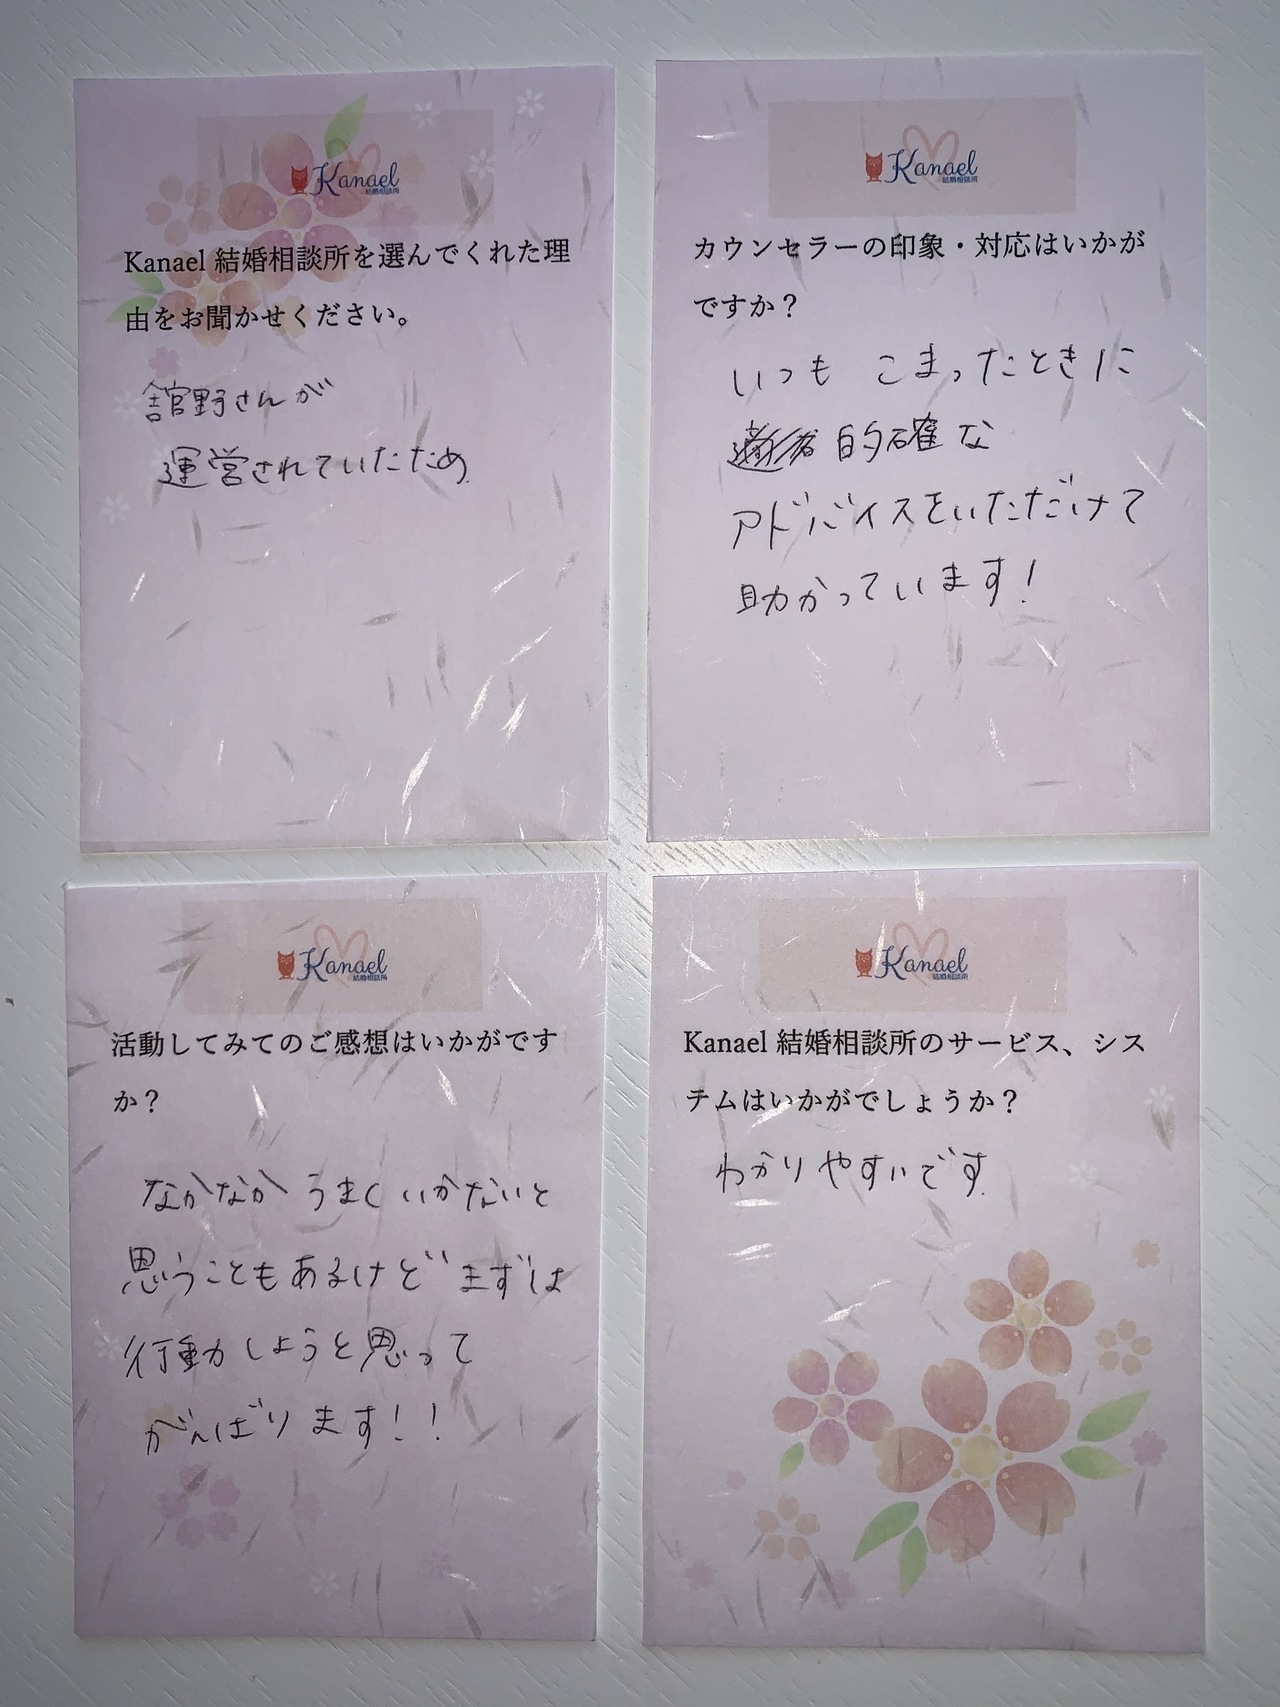 Kanael
結婚相談所
Kanael 結婚相談所を選んでくれた理
由をお聞かせください。
舘野さんが
運営されていたため
Kanael
結婚相談所
カウンセラーの印象・対応はいかが
ですか？
いつも こまったときに
的確な
アドバイスをいただけて
助かっています！
Kanael
結婚相談所
活動してみてのご感想はいかがです
か？
なかなかうまくいかないと
思うこともあるけど まずは
行動しようと思って
がんばります！！
Kanael
結婚相談所
Kanael 結婚相談所のサービス、シス
テムはいかがでしょうか？
わかりやすいです